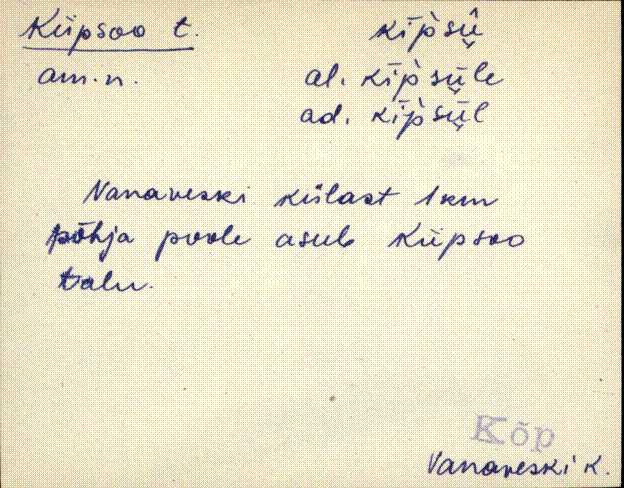 Kiipsoo t. kì̀psǖ
am.n. al. kì̀psüle
ad. kì̀psül
Vanaveski külast 1 km
põhja poole asub Kiipsoo
talu.
Kõp
Vanaveski k.